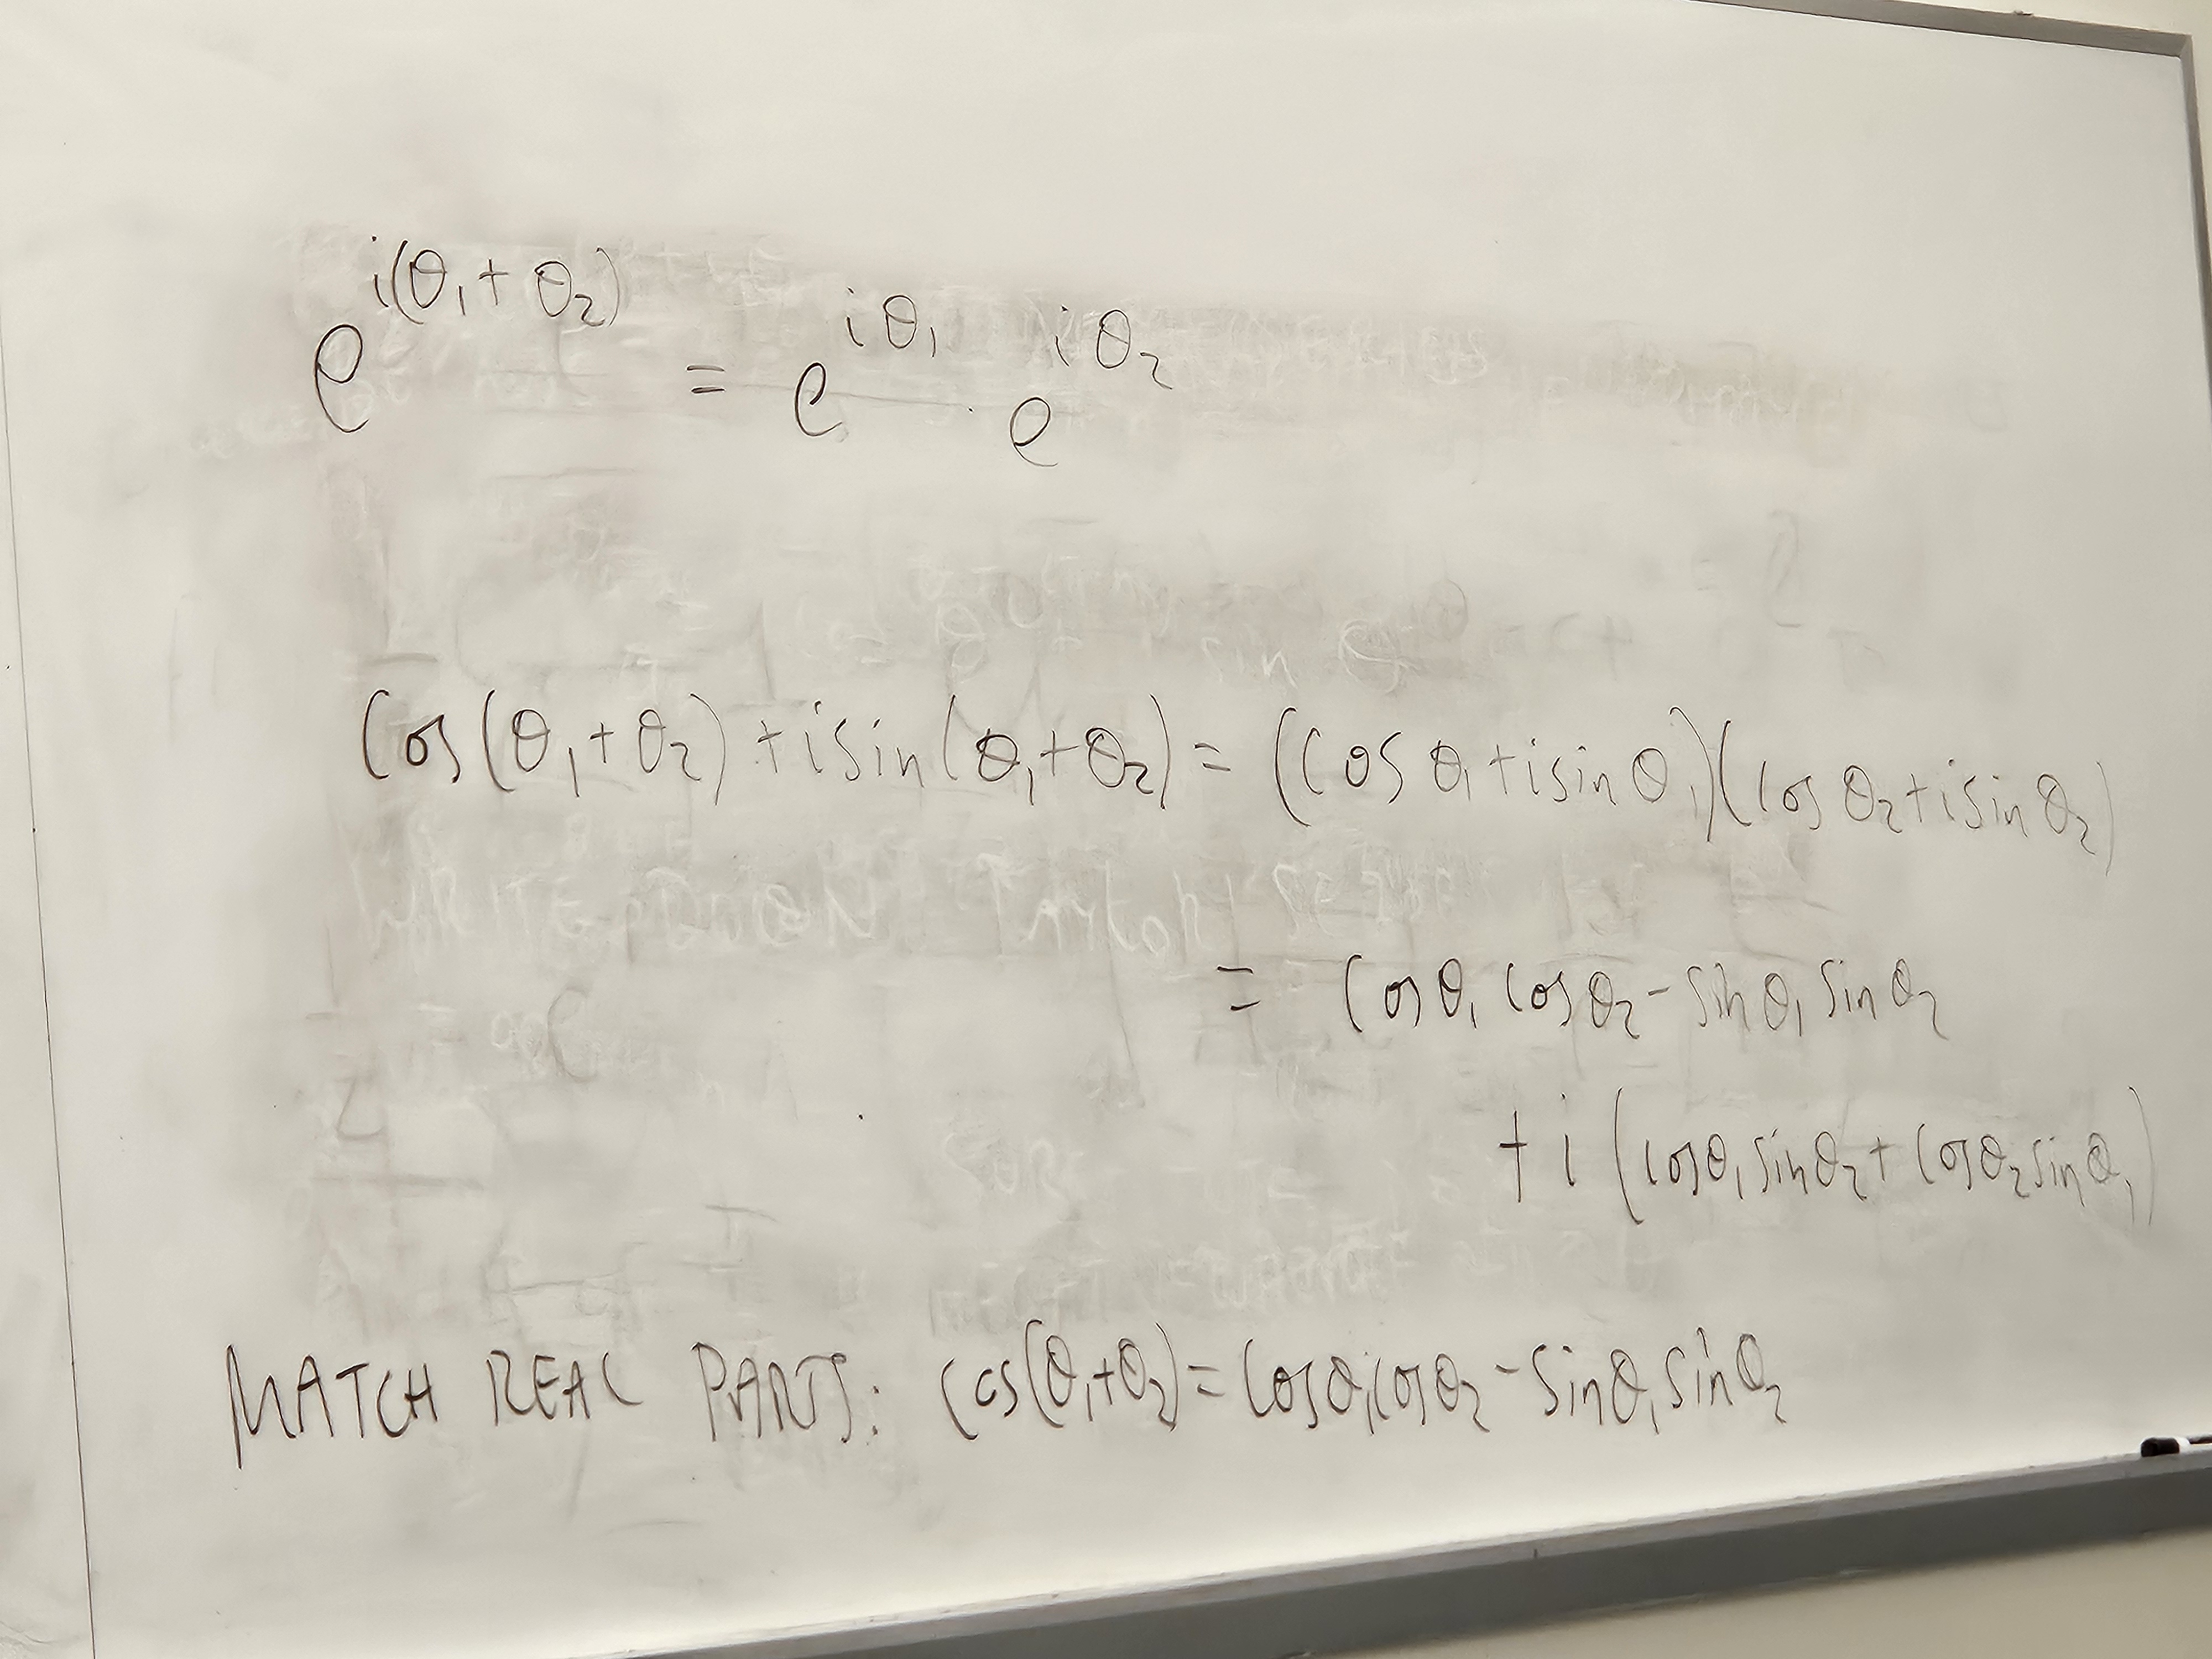 e^{i(θ₁+θ₂)} = e^{iθ₁} · e^{iθ₂}
cos(θ₁+θ₂) + i sin(θ₁+θ₂) = (cos θ₁ + i sin θ₁)(cos θ₂ + i sin θ₂)
= cos θ₁ cos θ₂ - sin θ₁ sin θ₂
+ i (cos θ₁ sin θ₂ + cos θ₂ sin θ₁)
MATCH REAL PARTS: cos(θ₁+θ₂) = cos θ₁ cos θ₂ - sin θ₁ sin θ₂